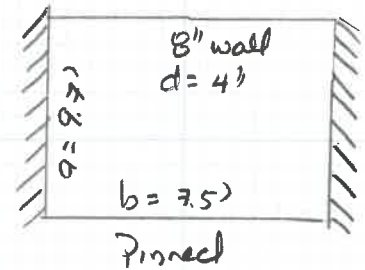 8" wall
d= 4"
a =
b = 7.5'
Pinned